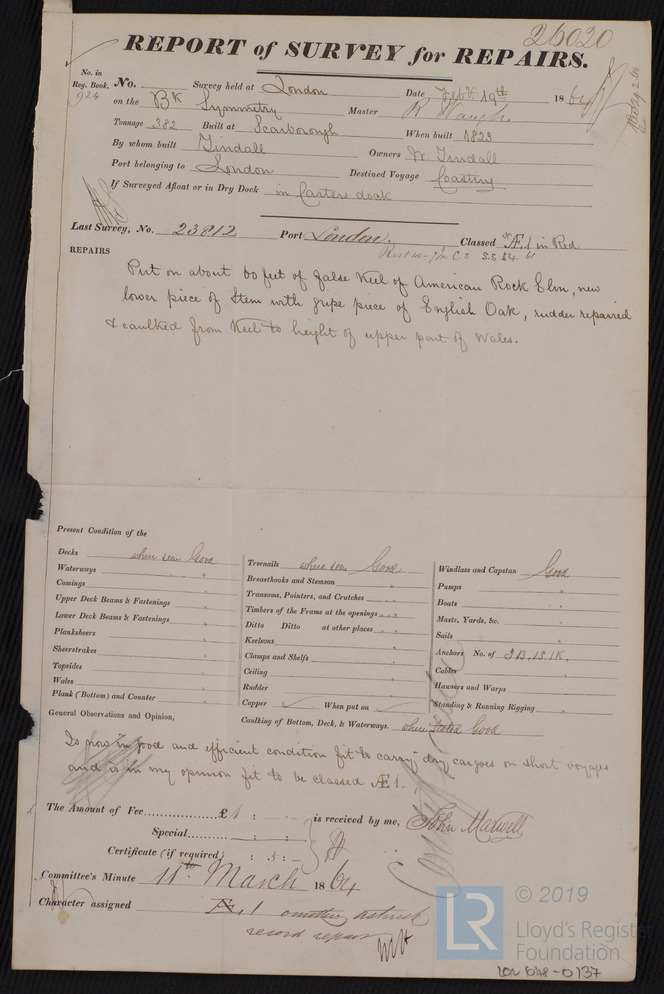 26020
REPORT of SURVEY for REPAIRS.
No. in Reg. Book. 924
No. Survey held at London Date Feb 19th 1864
on the Bk Symmetry Master R
Tonnage 382 Built at Scarborough When built 1823
By whom built Tindall Owners W Tindall
Port belonging to London Destined Voyage Coasting
If Surveyed Afloat or in Dry Dock in Carters dock
Last Survey, No. 23812 Port London. Classed Æ 1 in Red
REPAIRS
Put on about 60 feet of false Keel of American Rock Elm, new
lower piece of Stem with gripe piece of English Oak, rudder repaired
& caulked from Keel to height of upper part of Wales.
Present Condition of the
Decks where seen Good
Waterways
Comings
Upper Deck Beams & Fastenings
Lower Deck Beams & Fastenings
Planksheers
Sheerstrakes
Topsides
Wales
Plank (Bottom) and Counter
Treenails where seen Good
Breasthooks and Stemson
Transoms, Pointers, and Crutches
Timbers of the Frame at the openings
Ditto Ditto at other places
Keelsons
Clamps and Shelfs
Ceiling
Rudder
Copper ✓ When put on ✓
Caulking of Bottom, Deck, & Waterways. where tested Good
Windlass and Capstan Good
Pumps
Boats
Masts, Yards, &c.
Sails
Anchors No. of 3B, 1S, 1K.
Cables
Hawsers and Warps
Standing & Running Rigging
General Observations and Opinion,
Is now in good and efficient condition fit to carry dry cargoes on short voyages
and is in my opinion fit to be classed Æ 1.
The Amount of Fee £1 : - : - is received by me, John Maxwell
Special : :
Certificate (if required) : 5 : -
Committee's Minute 11th March 1864
Character assigned Æ. 1
record repairs
© 2019
LR
Lloyd's Register
Foundation
LON 648-0137